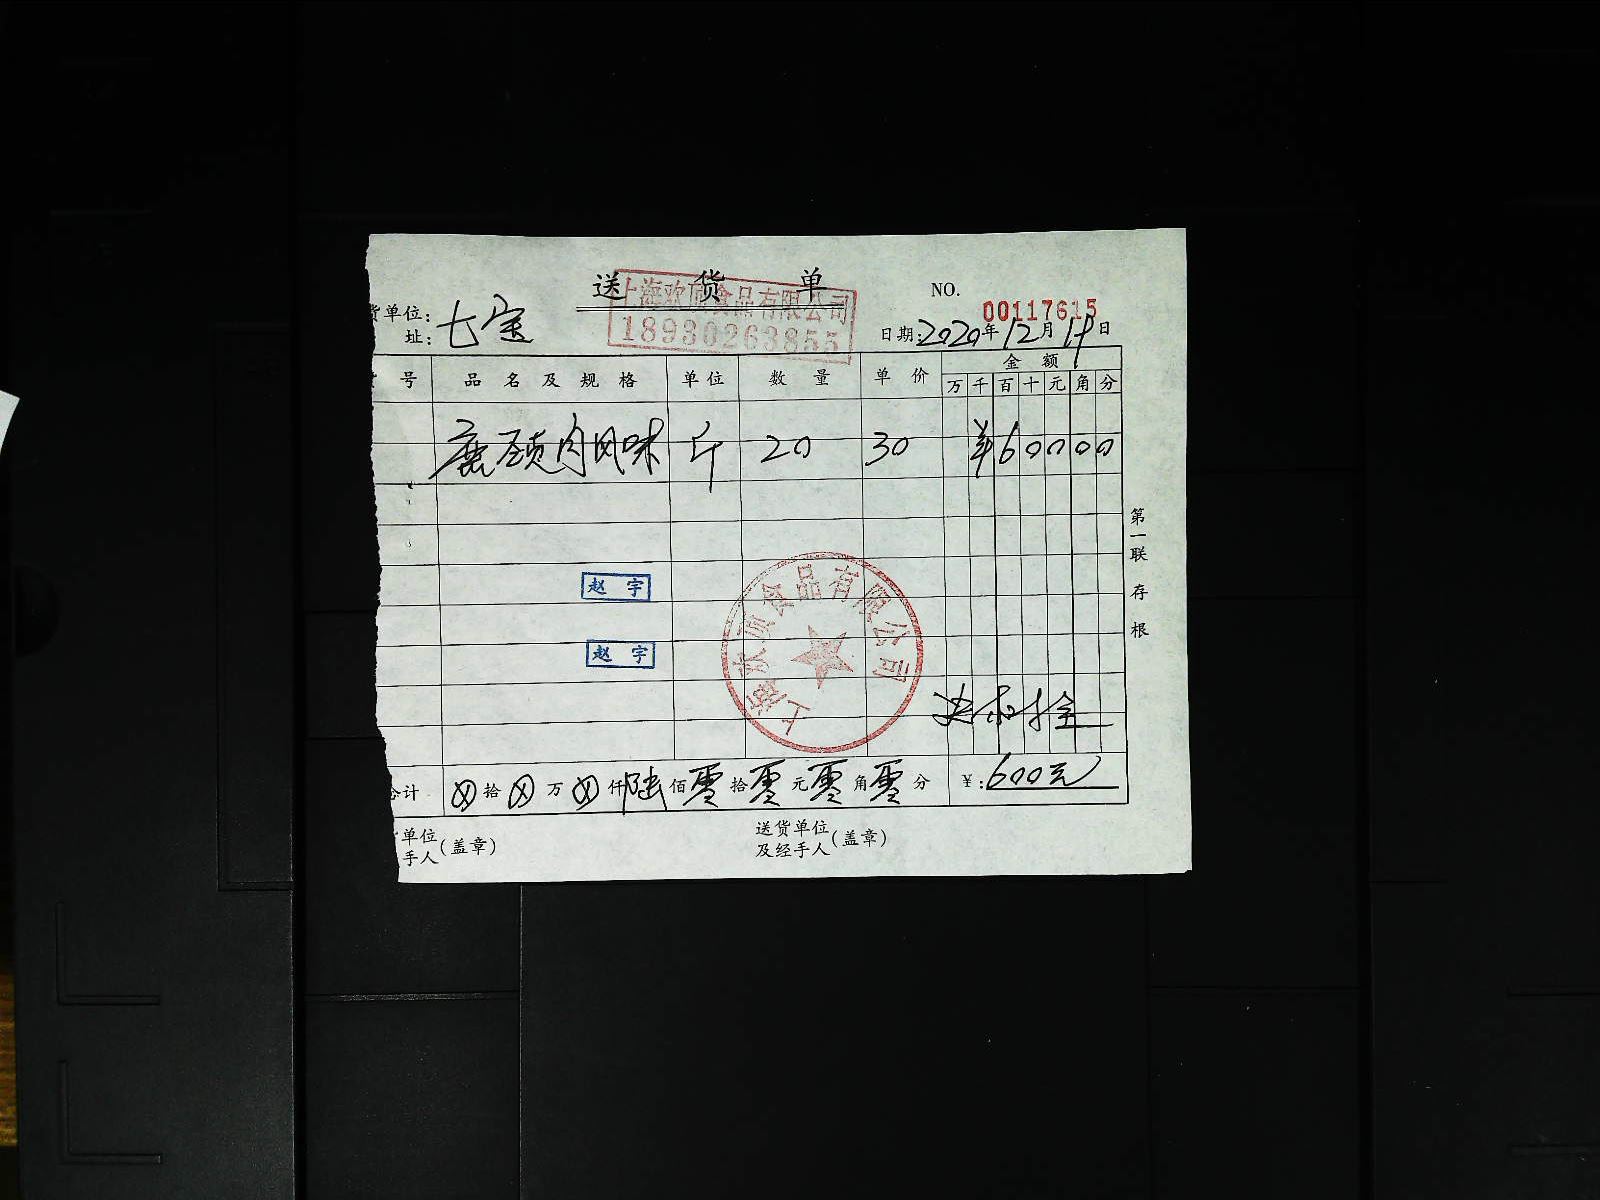 送货单
上海欢顶食品有限公司
18930263855
NO. 00117615
货单位:
址: 七宝
日期: 2020年12月19日
号 品名及规格 单位 数量 单价 金额
万 千 百 十 元 角 分
鹿颈肉风味 斤 20 30 ¥60000
第一联 存根
赵宇
赵宇
上海欢顶食品有限公司
合计 ⊗拾⊗万⊗仟陆佰零拾零元零角零分 ¥:600元
单位
手人(盖章)
送货单位
及经手人(盖章)